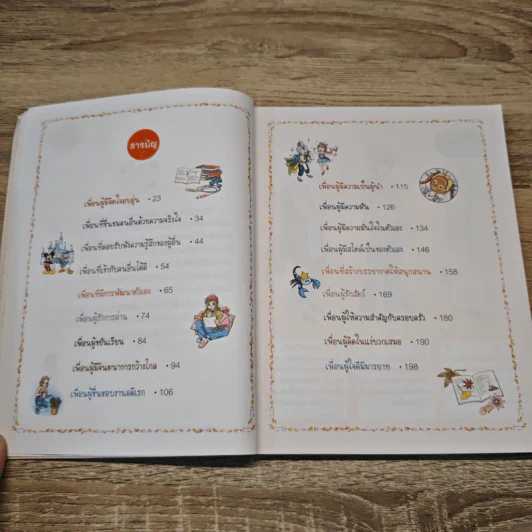 สารบัญ
เพื่อนผู้มีจิตใจอบอุ่น • 23
เพื่อนที่ชื่นชมคนอื่นด้วยความจริงใจ • 34
เพื่อนที่ตอบรับฟังความรู้สึกของผู้อื่น • 44
เพื่อนที่เข้ากับคนอื่นได้ดี • 54
เพื่อนที่มีการพัฒนาตัวเอง • 65
เพื่อนผู้รักการอ่าน • 74
เพื่อนผู้ขยันเรียน • 84
เพื่อนผู้มีจินตนาการกว้างไกล • 94
เพื่อนผู้ชื่นชอบงานอดิเรก • 106
เพื่อนผู้มีความเป็นผู้นำ • 115
เพื่อนผู้มีความฝัน • 126
เพื่อนผู้มีความมั่นใจในตัวเอง • 134
เพื่อนผู้มีสไตล์เป็นของตัวเอง • 146
เพื่อนที่สร้างบรรยากาศให้สนุกสนาน • 158
เพื่อนผู้รักสัตว์ • 169
เพื่อนผู้ให้ความสำคัญกับครอบครัว • 180
เพื่อนผู้คิดในแง่บวกเสมอ • 190
เพื่อนผู้ใจดีมีมารยาท • 198